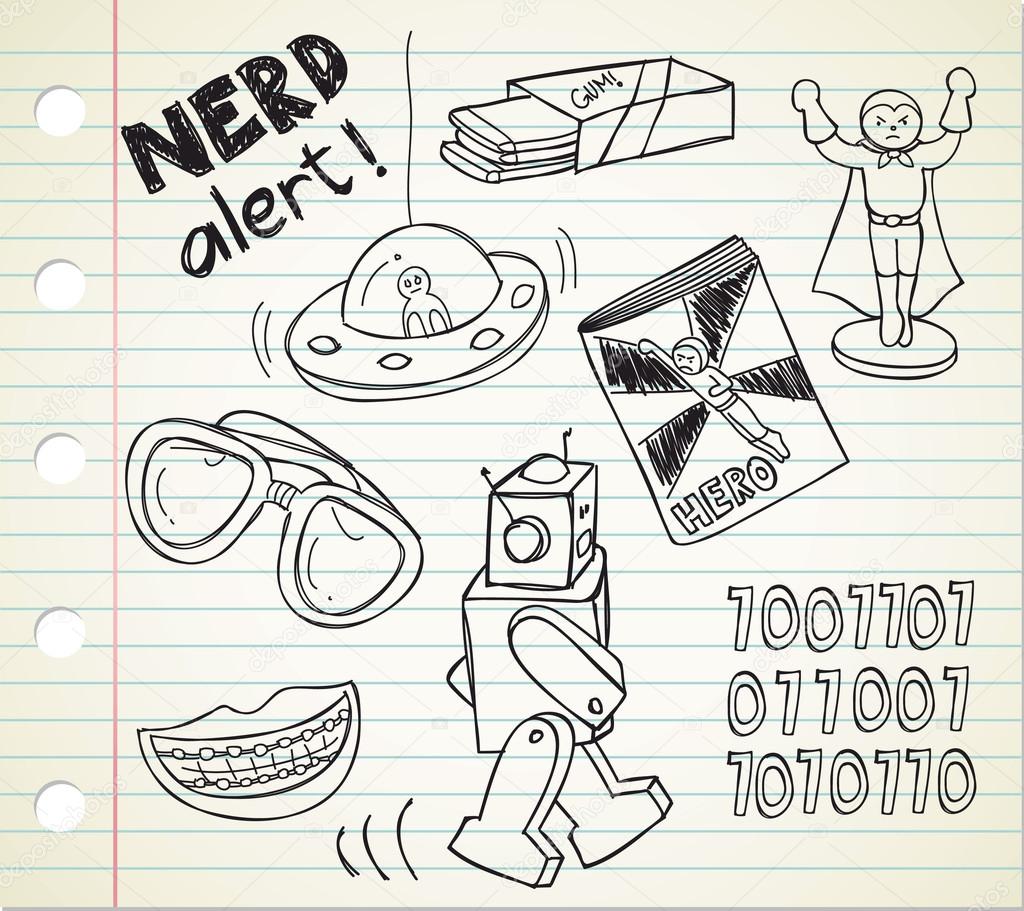 NERD
alert!
GUM!
HERO
1001101
011001
1010110